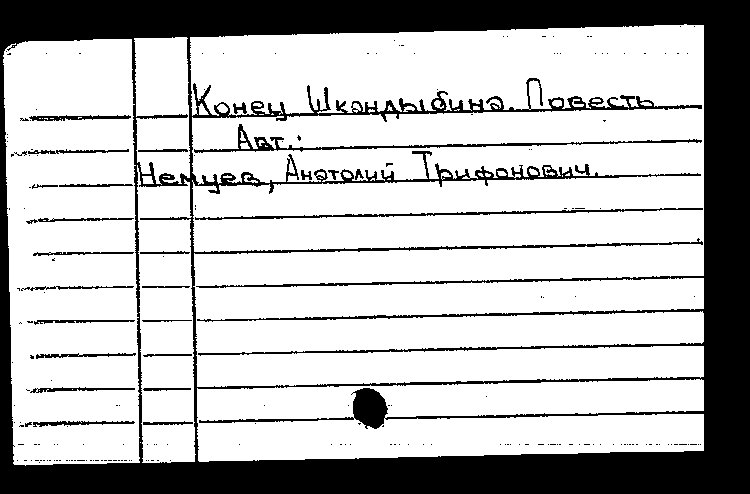 Конец Шкандыбина. Повесть
Авт.:
Немцев, Анатолий Трифонович.